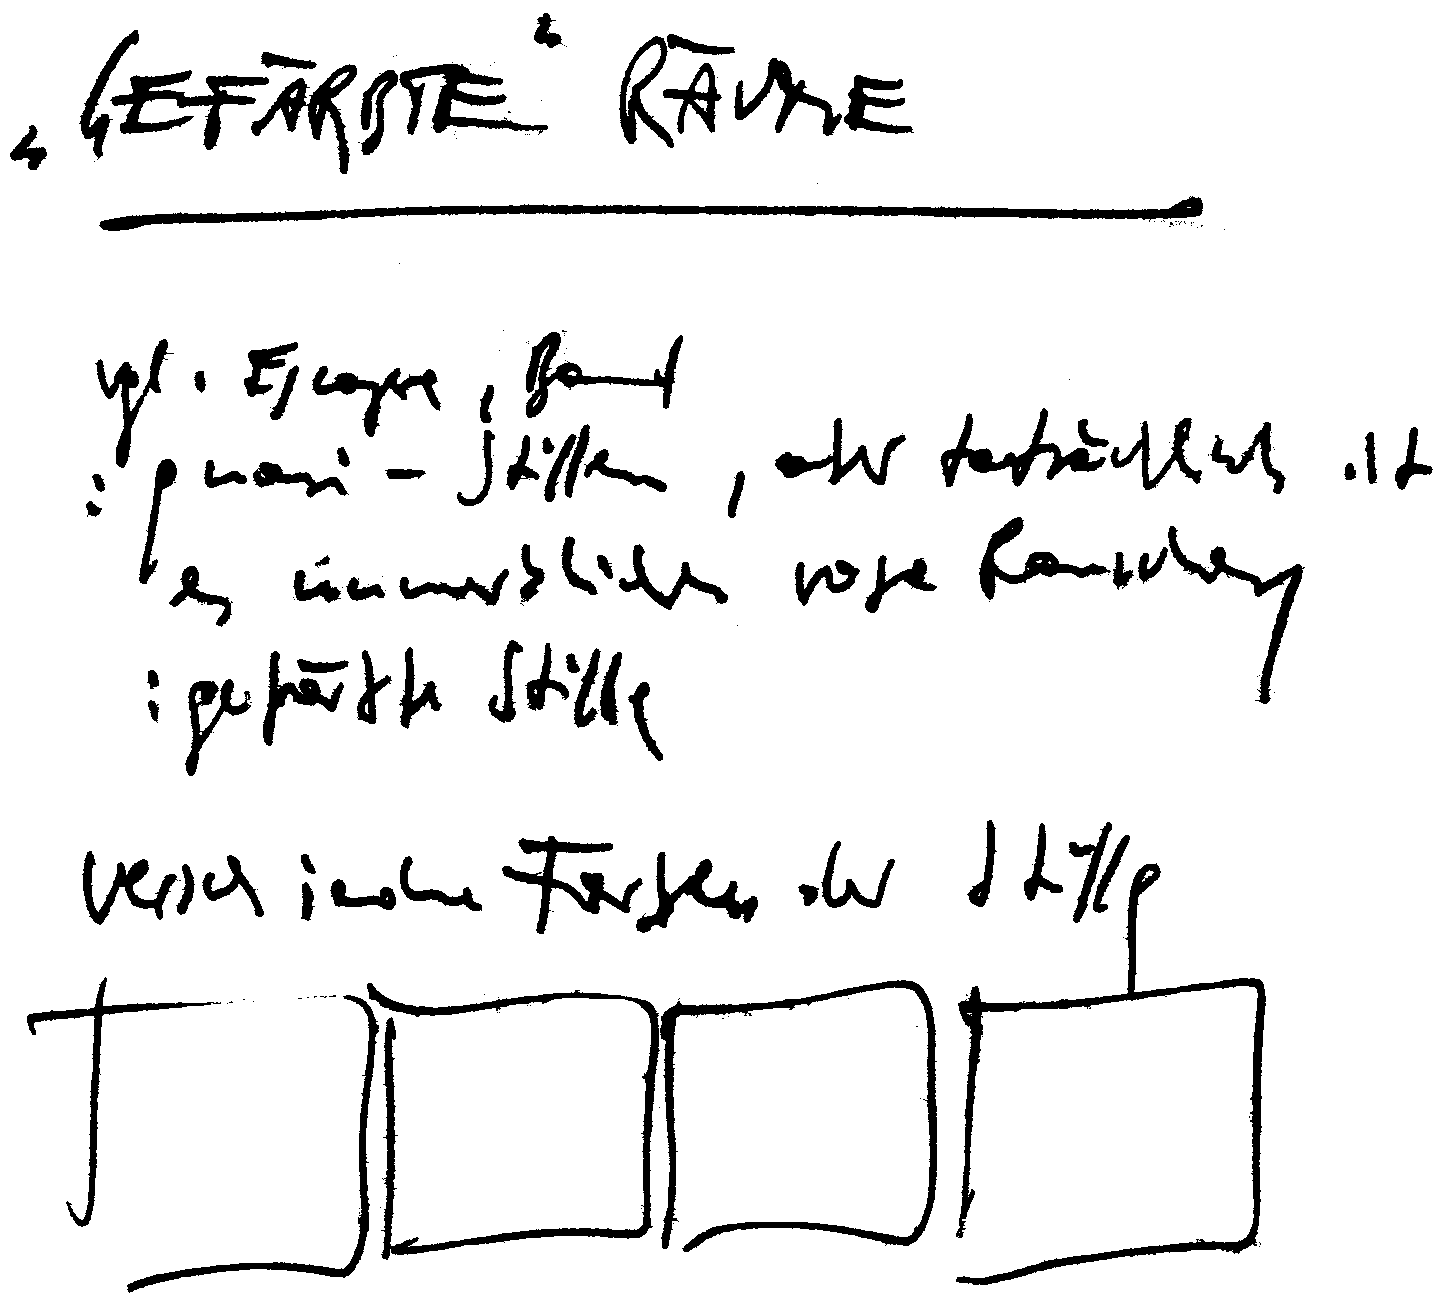 „GEFÄRBTE“ RÄUME
vgl. Escape, Band
: quasi-Stillen, aber tatsächlich ist
es unmerklich rosa Rauschen
: gefärbte Stille
Verschiedene Farben der Stille